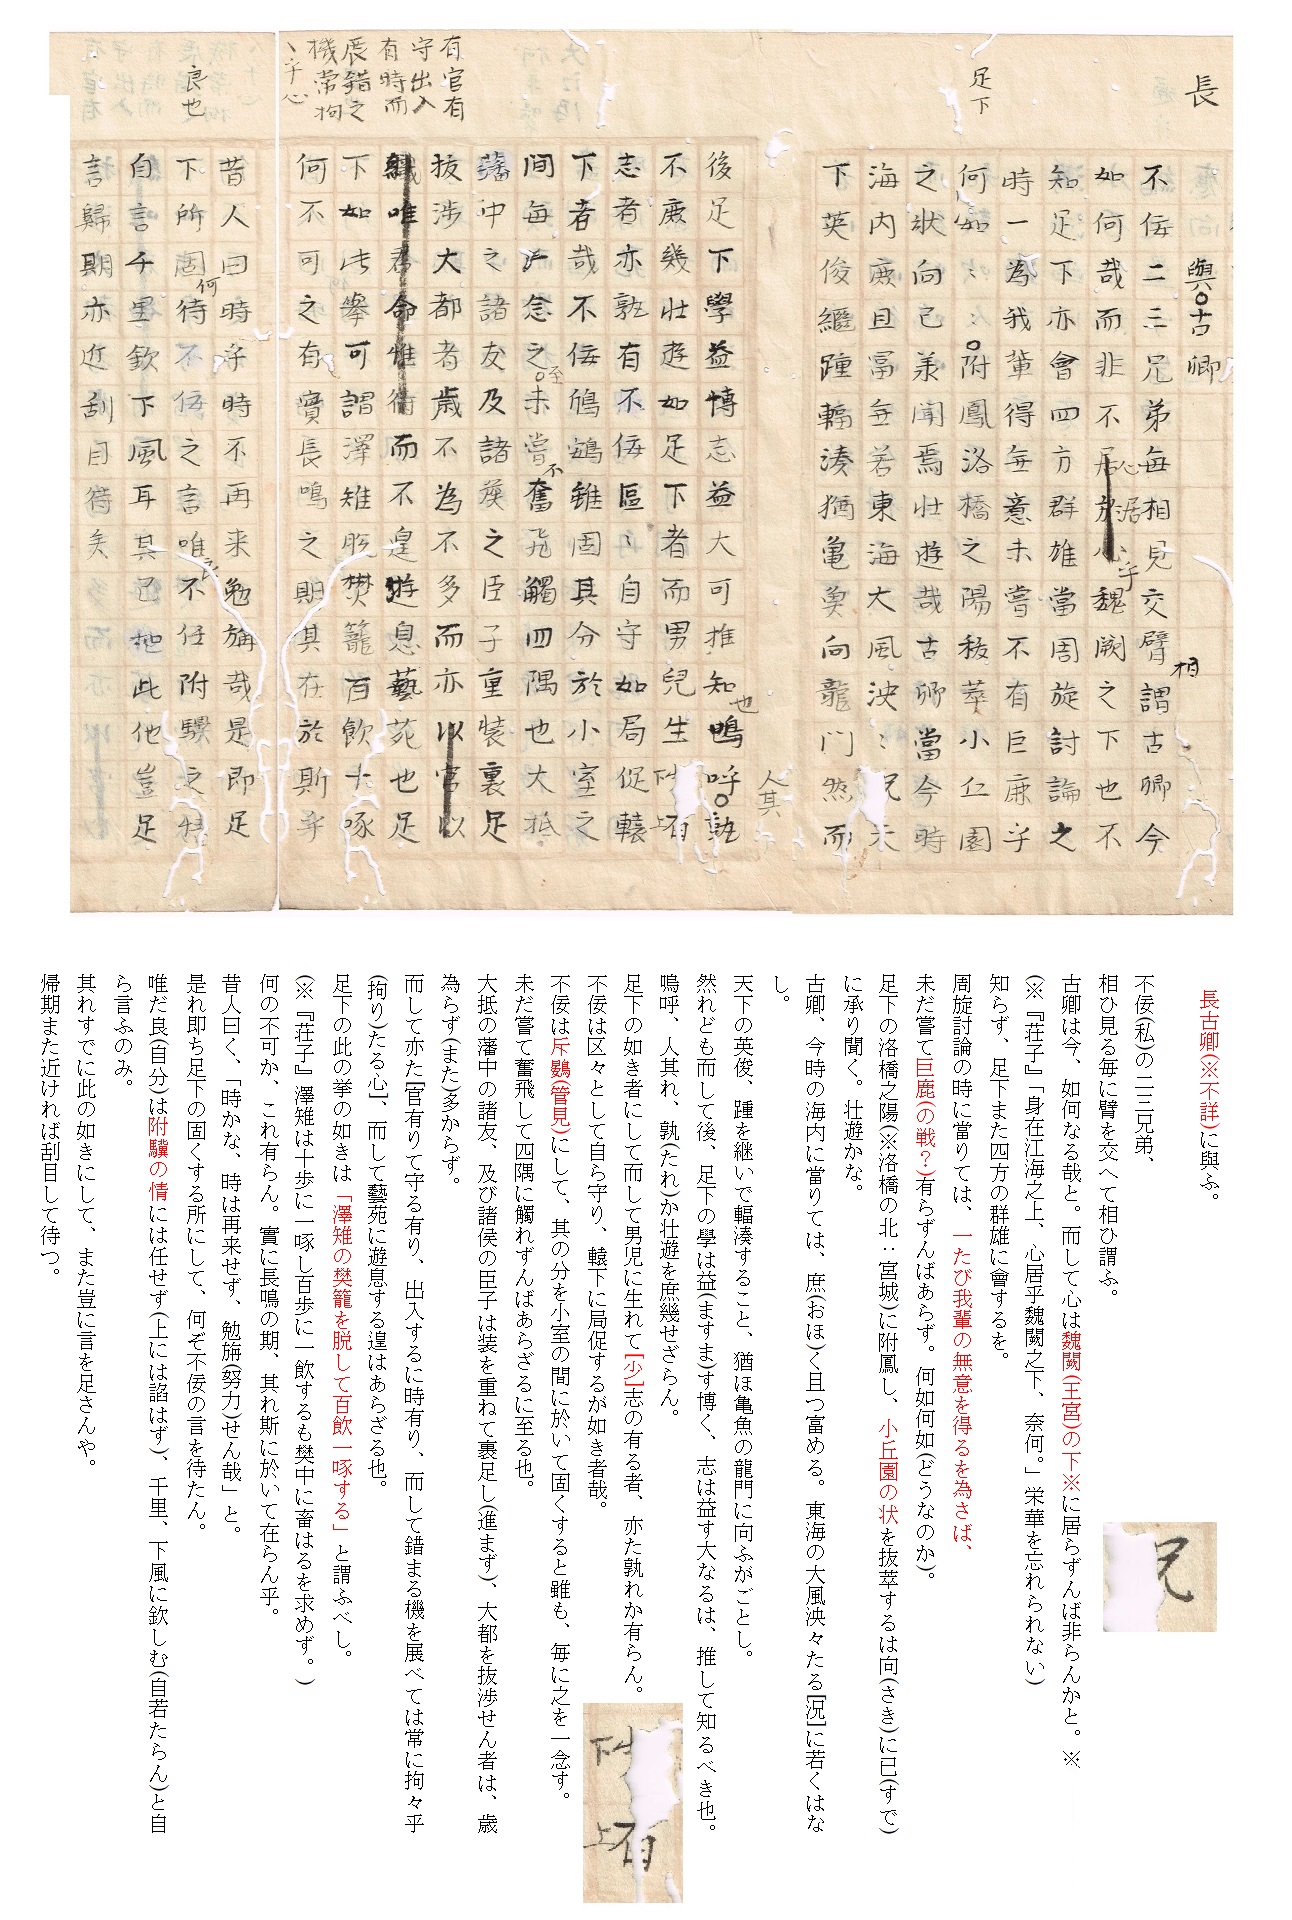 長
與古卿
不佞二三兄弟每相見交臂相謂古卿今
如何哉而非不心居乎魏闕之下也不
知足下亦會四方群雄當周旋討論之
時一為我輩得每意未嘗不有巨鹿乎
足下
何如〻〻附鳳洛橋之陽拔萃小丘園
之狀向已羕聞焉壯遊哉古卿當今時
海内庶且冨每若東海大風泱〻況天
下英俊繼踵輻湊猶亀魚向龍门然而
後足下學益博志益大可推知也嗚呼人其孰
不庶幾壮遊如足下者而男兒生
志者亦孰有不佞區〻自守如局促轅
下者哉不佞鳸鷃雖固其分於小室之
间每一念之至未嘗不奮飛觸四隅也大抵
藩中之諸友及諸矦之臣子重裝裹足
拔涉大都者歳不為不多而亦
有官有
守出入
有時而
辰錯之
機常拘
〻乎心
而不遑遊息藝苑也足
下如此舉可謂澤雉脫樊籠百飲十啄
何不可之有實長鳴之期其在於斯乎
昔人曰時乎時不再来勉旃哉是即足
下所固何待不佞之言唯不任附驥之情
良也
自言千里欽下風耳其已如此他豈足
言歸期亦近刮目待矣
長古卿(※不詳)に與ふ。
不佞(私)の二三兄弟、
相ひ見る毎に臂を交へて相ひ謂ふ。
古卿は今、如何なる哉と。而して心は魏闕(王宮)の下※に居らずんば非らんかと。※
(※『荘子』「身在江海之上、心居乎魏闕之下、奈何。」栄華を忘れられない)
知らず、足下また四方の群雄に會するを。
周旋討論の時に當りては、一たび我輩の無意を得るを為さば、
未だ嘗て巨鹿(の戦？)有らずんばあらず。何如何如(どうなのか)。
足下の洛橋之陽(※洛橋の北：宮城)に附鳳し、小丘園の状を抜萃するは向(さき)に已(すで)
に承り聞く。壮遊かな。
古卿、今時の海内に當りては、庶(おほ)く且つ富める。東海の大風泱々たる[況]に若くはな
し。
天下の英俊、踵を継いで輻湊すること、猶ほ亀魚の龍門に向ふがごとし。
然れども而して後、足下の學は益(ますま)す博く、志は益す大なるは、推して知るべき也。
嗚呼、人其れ、孰(たれ)か壮遊を庶幾せざらん。
足下の如き者にして而して男児に生れて[少]志の有る者、亦た孰れか有らん。
不佞は区々として自ら守り、轅下に局促するが如き者哉。
不佞は斥鷃(管見)にして、其の分を小室の間に於いて固くすると雖も、毎に之を一念す。
未だ嘗て奮飛して四隅に觸れずんばあらざるに至る也。
大抵の藩中の諸友、及び諸侯の臣子は装を重ねて裹足し(進まず)、大都を抜渉せん者は、歳
為らず(また)多からず。
而して亦た[官有りて守る有り、出入するに時有り、而して錯まる機を展べては常に拘々乎
(拘り)たる心]、而して藝苑に遊息する遑はあらざる也。
足下の此の挙の如きは「澤雉の樊籠を脱して百飲一啄する」と謂ふべし。
(※『荘子』澤雉は十歩に一啄し百歩に一飲するも樊中に畜はるを求めず。)
何の不可か、これ有らん。實に長鳴の期、其れ斯に於いて在らん乎。
昔人曰く、「時かな、時は再来せず、勉旃(努力)せん哉」と。
是れ即ち足下の固くする所にして、何ぞ不佞の言を待たん。
唯だ良(自分)は附驥の情には任せず(上には諂はず)、千里、下風に欽しむ(自若たらん)と自
ら言ふのみ。
其れすでに此の如きにして、また豈に言を足さんや。
帰期また近ければ刮目して待つ。